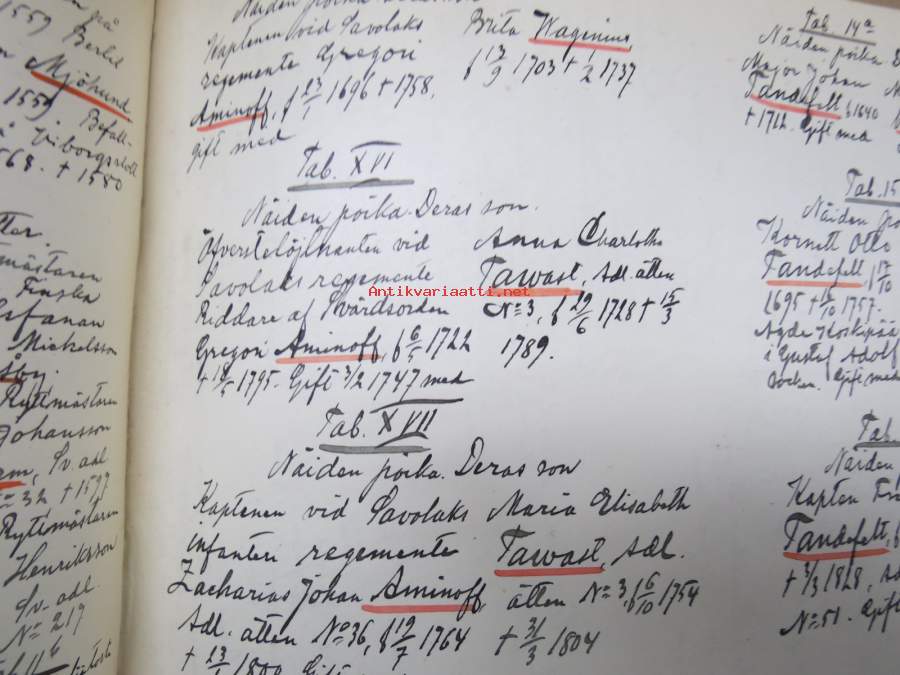 1559 Berlil
Mjöhund
1559 Befall-
Viborgsslott
1568. + 1580
mästaren
Finska
Mickelsson
Ryttmästaren
Johansson
Sv. adl
№ 32 + 1577
Ryttmästaren
Henriksson
Sv. adl.
№ 217
Näiden poika
Kaptenen vid Savolaks
regemente Gregori
Aminoff, f 23/1 1696 + 1758.
gift med
Brita Wagenius,
f 13/9 1703 + 1/2 1737
Tab. XVI
Näiden poika. Deras son.
Öfverstelöjtnanten vid
Savolaks regemente
Riddare af Svärdsorden
Gregori Aminoff, f 6/5 1722
1795. Gift 3/2 1747 med
Anna Charlotta
Tawast, Adl. ätten
№ 3, f 29/6 1728 + 15/3
1789.
Antikvariaatti.net
Tab. XVII
Näiden poika. Deras son
Kaptenen vid Savolaks
infanteri regemente
Zacharias Johan Aminoff,
Adl. ätten № 36, f 19/7 1764
Maria Elisabeth
Tawast, Adl.
ätten № 3, f 6/10 1754
+ 31/3 1804
Tab. 14a
Näiden poika
Major Johan
Tandefelt, f. 1640
+ 1712. Gift med
Tab. 15
Näiden
Kornett Otto
Tandefelt, f 17/10
1695 + 1757.
i Gustaf Adolf
socken. Gift med
Tab.
Näiden
Kapten
Tandefelt,
+ 3/3 1828,
№ 51. Gift